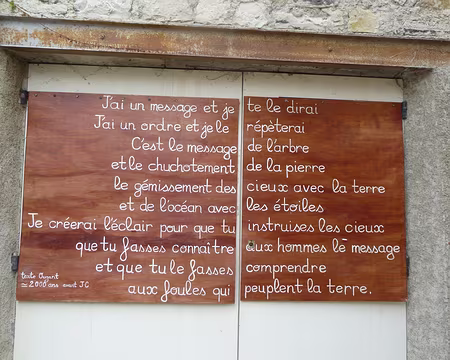 J'ai un message et je te le dirai
J'ai un ordre et je le répèterai
C'est le message de l'arbre
et le chuchotement de la pierre
le gémissement des cieux avec la terre
et de l'océan avec les étoiles
Je créerai l'éclair pour que tu instruises les cieux
que tu fasses connaître aux hommes le message
et que tu le fasses comprendre
aux foules qui peuplent la terre.
texte Ougarit
≃ 2000 ans avant JC